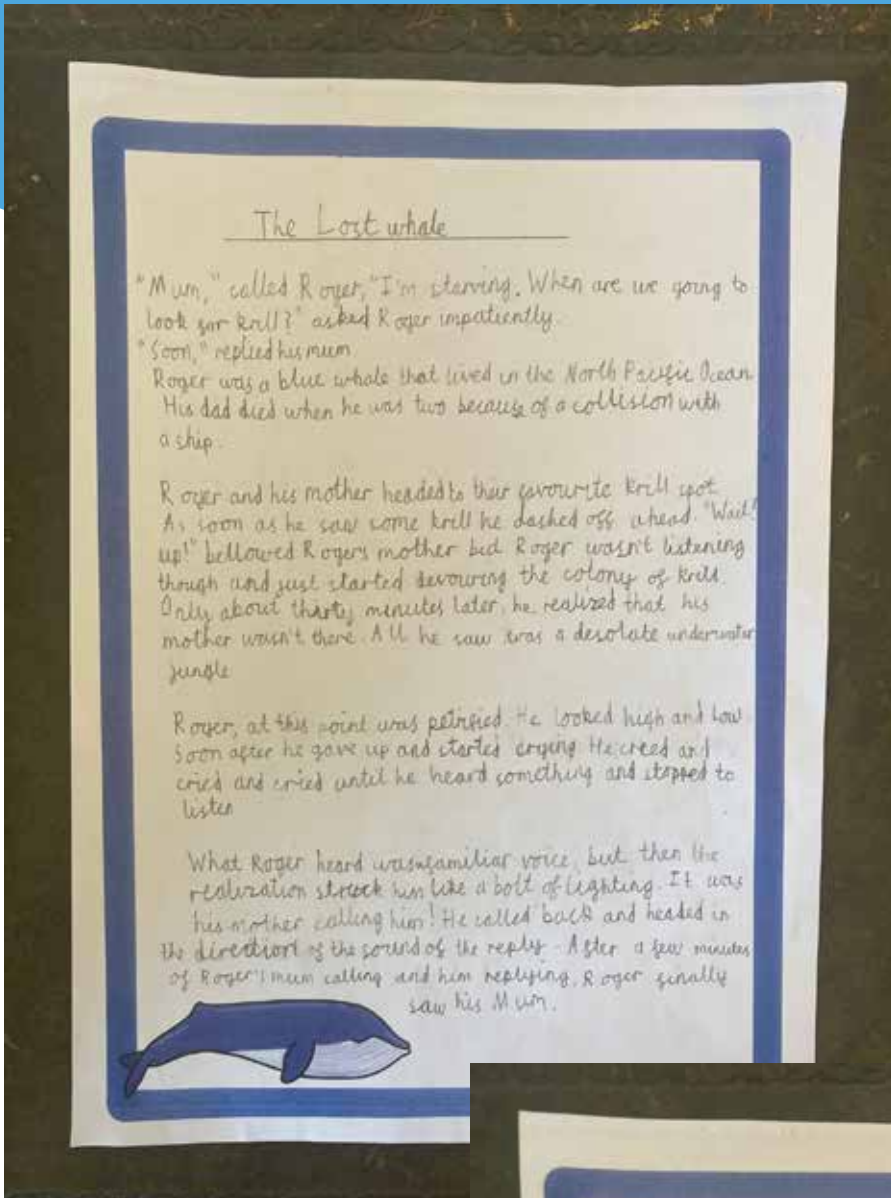 The Lost whale
"Mum," called Roger, "I'm starving. When are we going to
look for krill?" asked Roger impatiently.
"Soon," replied his mum
Roger was a blue whale that lived in the North Pacific Ocean
His dad died when he was two because of a collision with
a ship.
Roger and his mother headed to their favourite krill spot
As soon as he saw some krill he dashed off ahead. "Wait!
up!" bellowed Rogers mother but Roger wasn't listening
though and just started devouring the colony of krill.
Only about thirty minutes later, he realized that his
mother wasn't there. All he saw was a desolate underwater
jungle
Roger, at this point was petrified. He looked high and low
Soon after he gave up and started crying He creed and
cried and cried until he heard something and stopped to
listen
What Roger heard was familiar voice, but then the
realization struck him like a bolt of lighting. It was
his mother calling him! He called back and headed in
the direction of the sound of the reply. After a few minutes
of Roger's mum calling and him replying, Roger finally
saw his Mum.